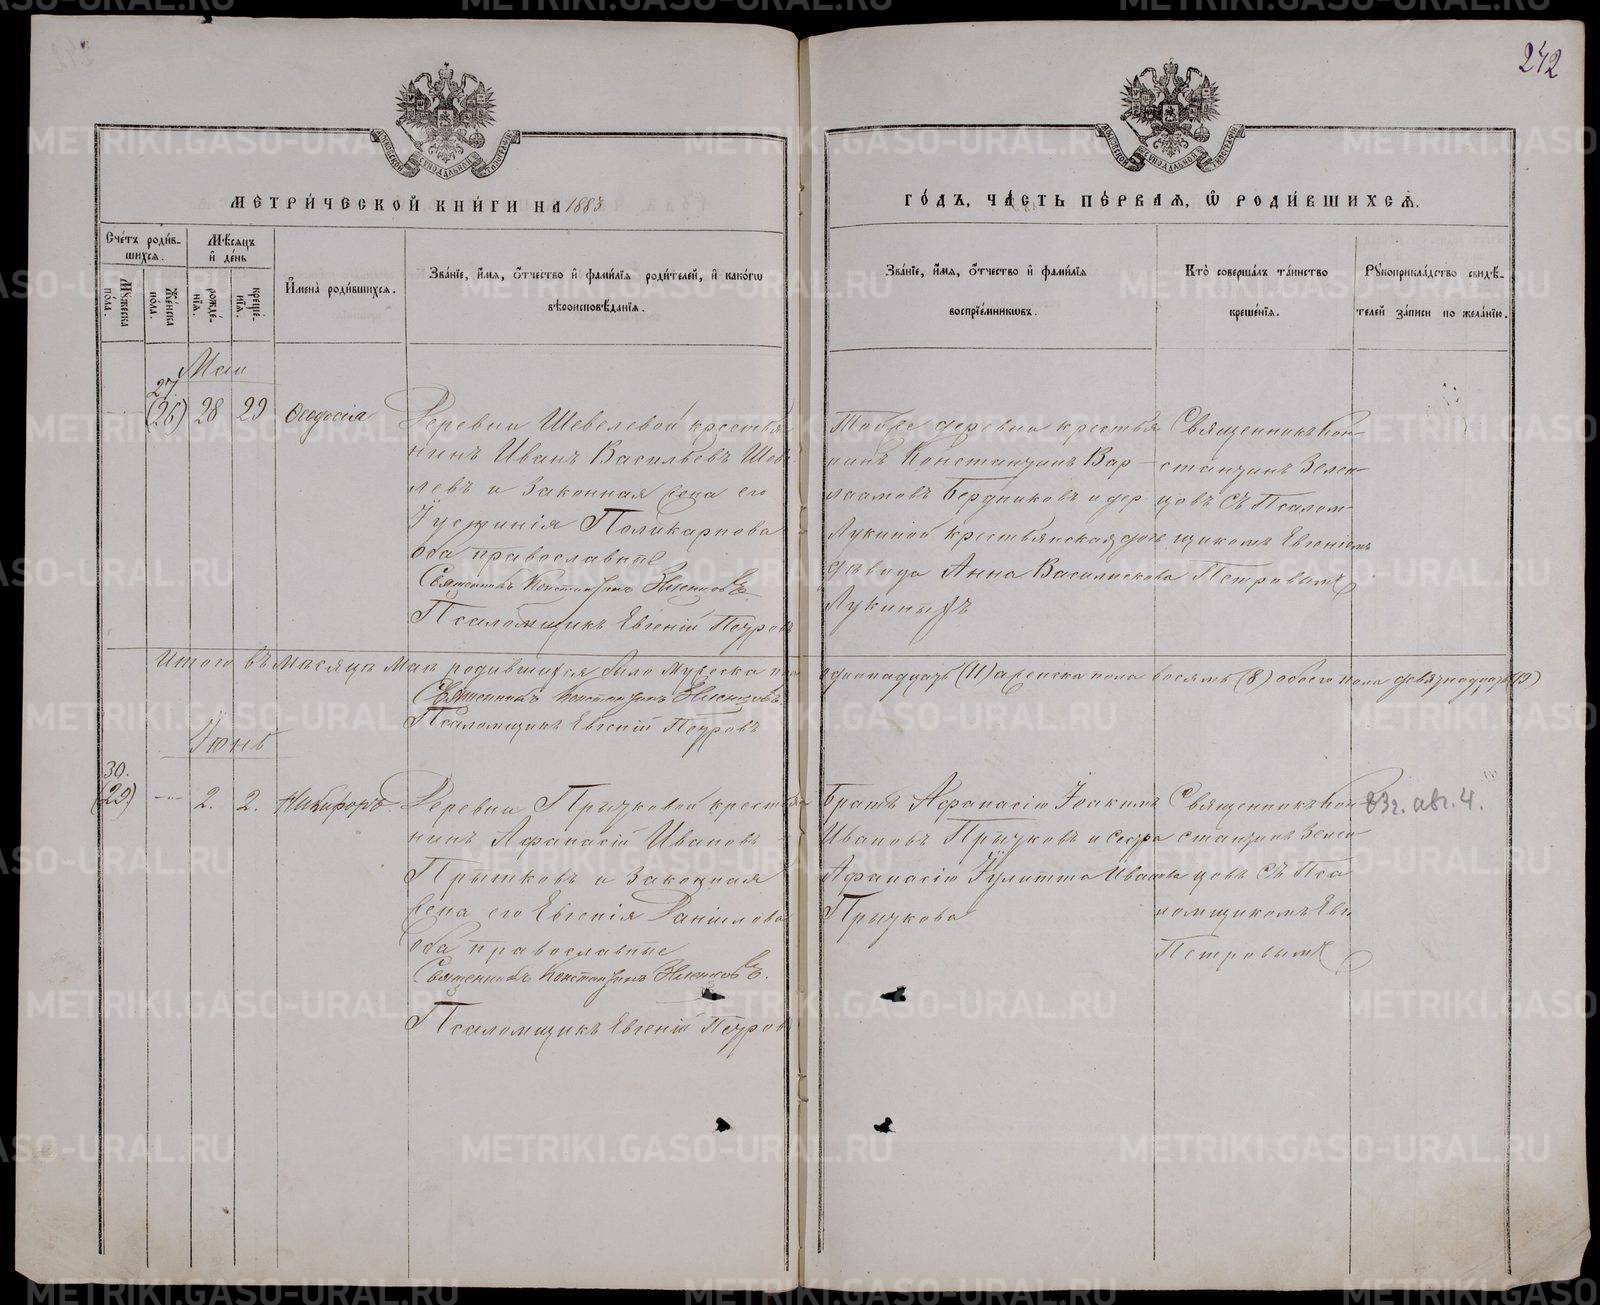 242
МЕТРИ́ЧЕСКОЙ КНИ́ГИ НА 1883
ГО́ДЪ, ЧА́СТЬ ПЕ́РВАѦ, Ѿ РОДИ́ВШИХСѦ.
Сче́тъ роди́в-
шихсѧ.
Мѣ́сѧцъ
и҆ де́нь
Мꙋ́жеска
по́ла.
Же́нска
по́ла.
рожде́-
нїѧ.
креще́-
нїѧ.
И҆мена̀ роди́вшихсѧ.
Зва́нїе, и҆́мѧ, ѻ҆́тчество и҆ фами́лїѧ роди́телей, и҆ како́гѡ
вѣроисповѣ́данїѧ.
Зва́нїе, и҆́мѧ, ѻ҆́тчество и҆ фами́лїѧ
воспрїе́мникѡвъ.
Кто̀ соверша́лъ та́инство
креще́нїѧ.
Рꙋкоприкла́дство свидѣ́-
телей за́писи по жела́нїю.
Май
27.
(26) 28 29 Ѳеодосія
Деревни Шевелевой крестья
нинъ Иванъ Васильевъ Шеве
левъ и законная жена его
Іустинія Поликарпова
оба православные
Священникъ Константинъ Зеленцовъ.
Псаломщикъ Евгеній Петровъ
Тойже деревни крестья
нинъ Константинъ Вар-
лаамовъ Бердниковъ и дер
Лукиной крестьянская
дѣвица Анна
Лукиныхъ
Священникъ Кон-
стантинъ Зелен-
цовъ съ Псалом-
щикомъ Евгеніемъ
Петровымъ
Итого въ мѣсяцѣ Маѣ родившихся было мужеска пола одиннадцать (11) а женска пола восемь (8) обоего пола девятнадцать (19)
Священникъ Константинъ Зеленцовъ.
Псаломщикъ Евгеній Петровъ
Іюнь
30.
(29) — 2. 2. Никифоръ
Деревни Прытковой крестья
нинъ Афанасій Ивановъ
Прытковъ и законная
жена его Евгенія Даніилова
оба православные
Священникъ Константинъ Зеленцовъ.
Псаломщикъ Евгеній Петровъ
Братъ Афанасію Іоакимъ
Ивановъ Прытковъ и сестра
Афанасію Іулитта Иванова
Прыткова
Священникъ Кон
стантинъ Зелен
цовъ съ Пса
ломщикомъ Евг.
Петровымъ
83г. авг. 4.
METRIKI.GASO-URAL.RU